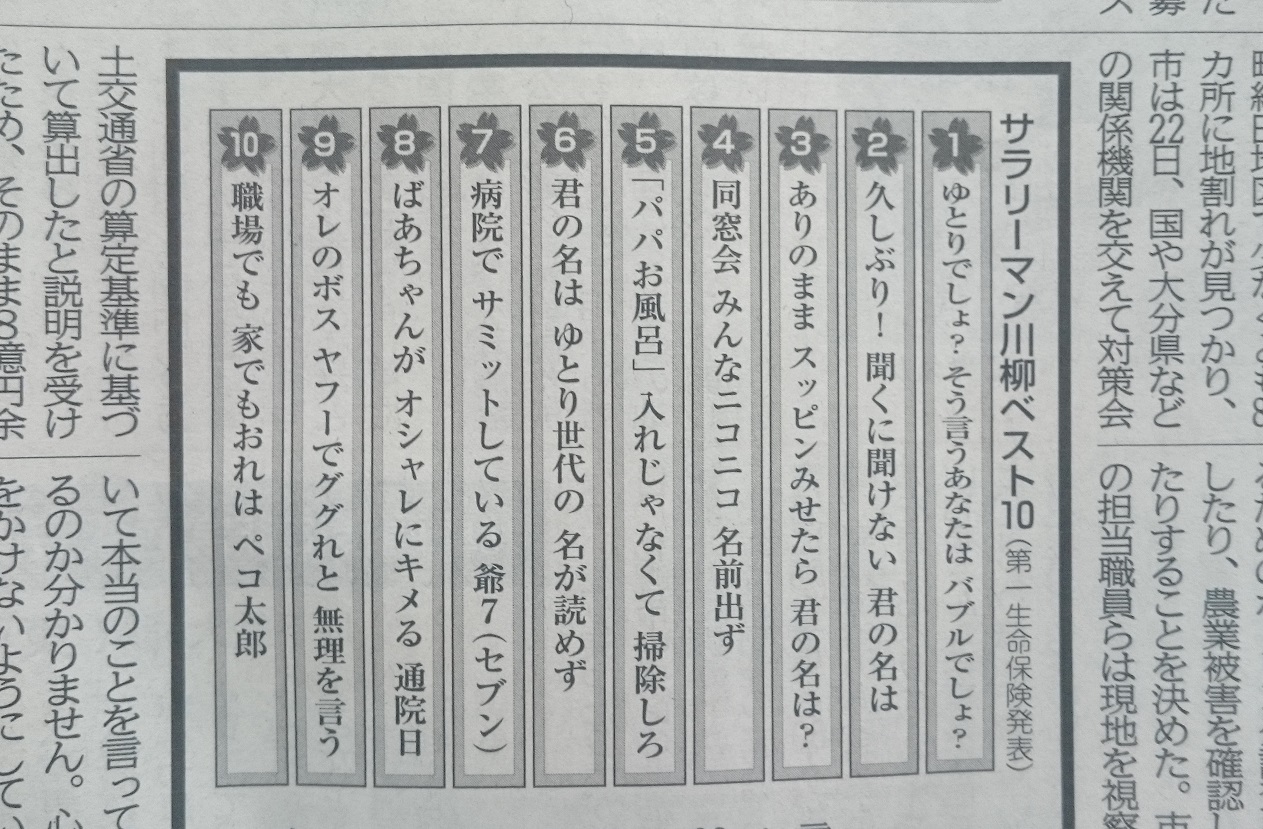 サラリーマン川柳ベスト10（第一生命保険発表）
1 ゆとりでしょ？ そう言うあなたは バブルでしょ？
2 久しぶり！ 聞くに聞けない 君の名は
3 ありのまま スッピンみせたら 君の名は？
4 同窓会 みんなニコニコ 名前出ず
5 「パパお風呂」 入れじゃなくて 掃除しろ
6 君の名は ゆとり世代の 名が読めず
7 病院で サミットしている 爺7（セブン）
8 ばあちゃんが オシャレにキメる 通院日
9 オレのボス ヤフーでググれと 無理を言う
10 職場でも 家でもおれは ペコ太郎
カ所に地割れが見つかり、
市は22日、国や大分県など
の関係機関を交えて対策会
したり、農業被害を確認し
たりすることを決めた。市
の担当職員らは現地を視察
土交通省の算定基準に基づ
いて算出したと説明を受け
たため、そのまま8億円余
いて本当のことを言って
るのか分かりません。心
をかけないようにしてい